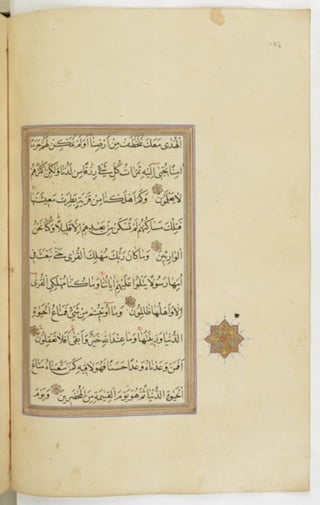 الهدى معك نتخطف من ارضنا اولم نمكن لهم حرما
امنا يجبى اليه ثمرات كل شيء رزقا من لدنا ولكن اكثرهم
لا يعلمون وكم اهلكنا من قرية بطرت معيشتها
فتلك مساكنهم لم تسكن من بعدهم الا قليلا وكنا نحن
الوارثين وما كان ربك مهلك القرى حتى يبعث في
امها رسولا يتلوا عليهم اياتنا وما كنا مهلكي القرى
الا واهلها ظالمون وما اوتيتم من شيء فمتاع الحيوة
الدنيا وزينتها وما عند الله خير وابقى افلا تعقلون
افمن وعدناه وعدا حسنا فهو لاقيه كمن متعناه متاع
الحيوة الدنيا ثم هو يوم القيمة من المحضرين ويوم